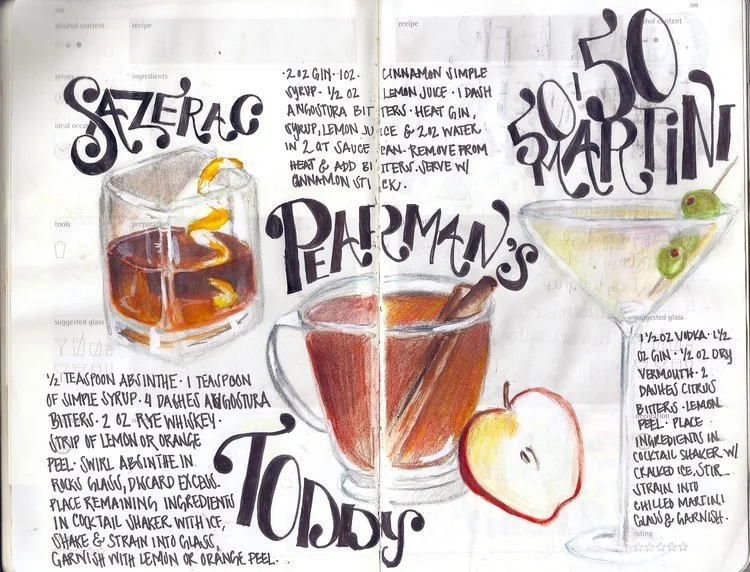 SAZERAC
½ TEASPOON ABSINTHE · 1 TEASPOON
OF SIMPLE SYRUP · 4 DASHES ANGOSTURA
BITTERS · 2 OZ RYE WHISKEY ·
STRIP OF LEMON OR ORANGE
PEEL · SWIRL ABSINTHE IN
ROCKS GLASS, DISCARD EXCESS.
PLACE REMAINING INGREDIENTS
IN COCKTAIL SHAKER WITH ICE,
SHAKE & STRAIN INTO GLASS,
GARNISH WITH LEMON OR ORANGE PEEL.
· 2 OZ GIN · 1 OZ · CINNAMON SIMPLE
SYRUP · ½ OZ LEMON JUICE · 1 DASH
ANGOSTURA BITTERS · HEAT GIN,
SYRUP, LEMON JUICE & 2 OZ WATER
IN 2 QT SAUCE CAN · REMOVE FROM
HEAT & ADD BITTERS. SERVE W/
CINNAMON STICK.
PEARMAN'S
TODDY
50/50
MARTINI
1 ½ OZ VODKA · 1 ½
OZ GIN · ½ OZ DRY
VERMOUTH · 2
DASHES CITRUS
BITTERS · LEMON
PEEL · PLACE
INGREDIENTS IN
COCKTAIL SHAKER W/
CRACKED ICE, STIR
STRAIN INTO
CHILLED MARTINI
GLASS & GARNISH ·
alcohol content
recipe
serves
ingredients
tools
preparation
suggested glass
recipe
suggested glass
rating